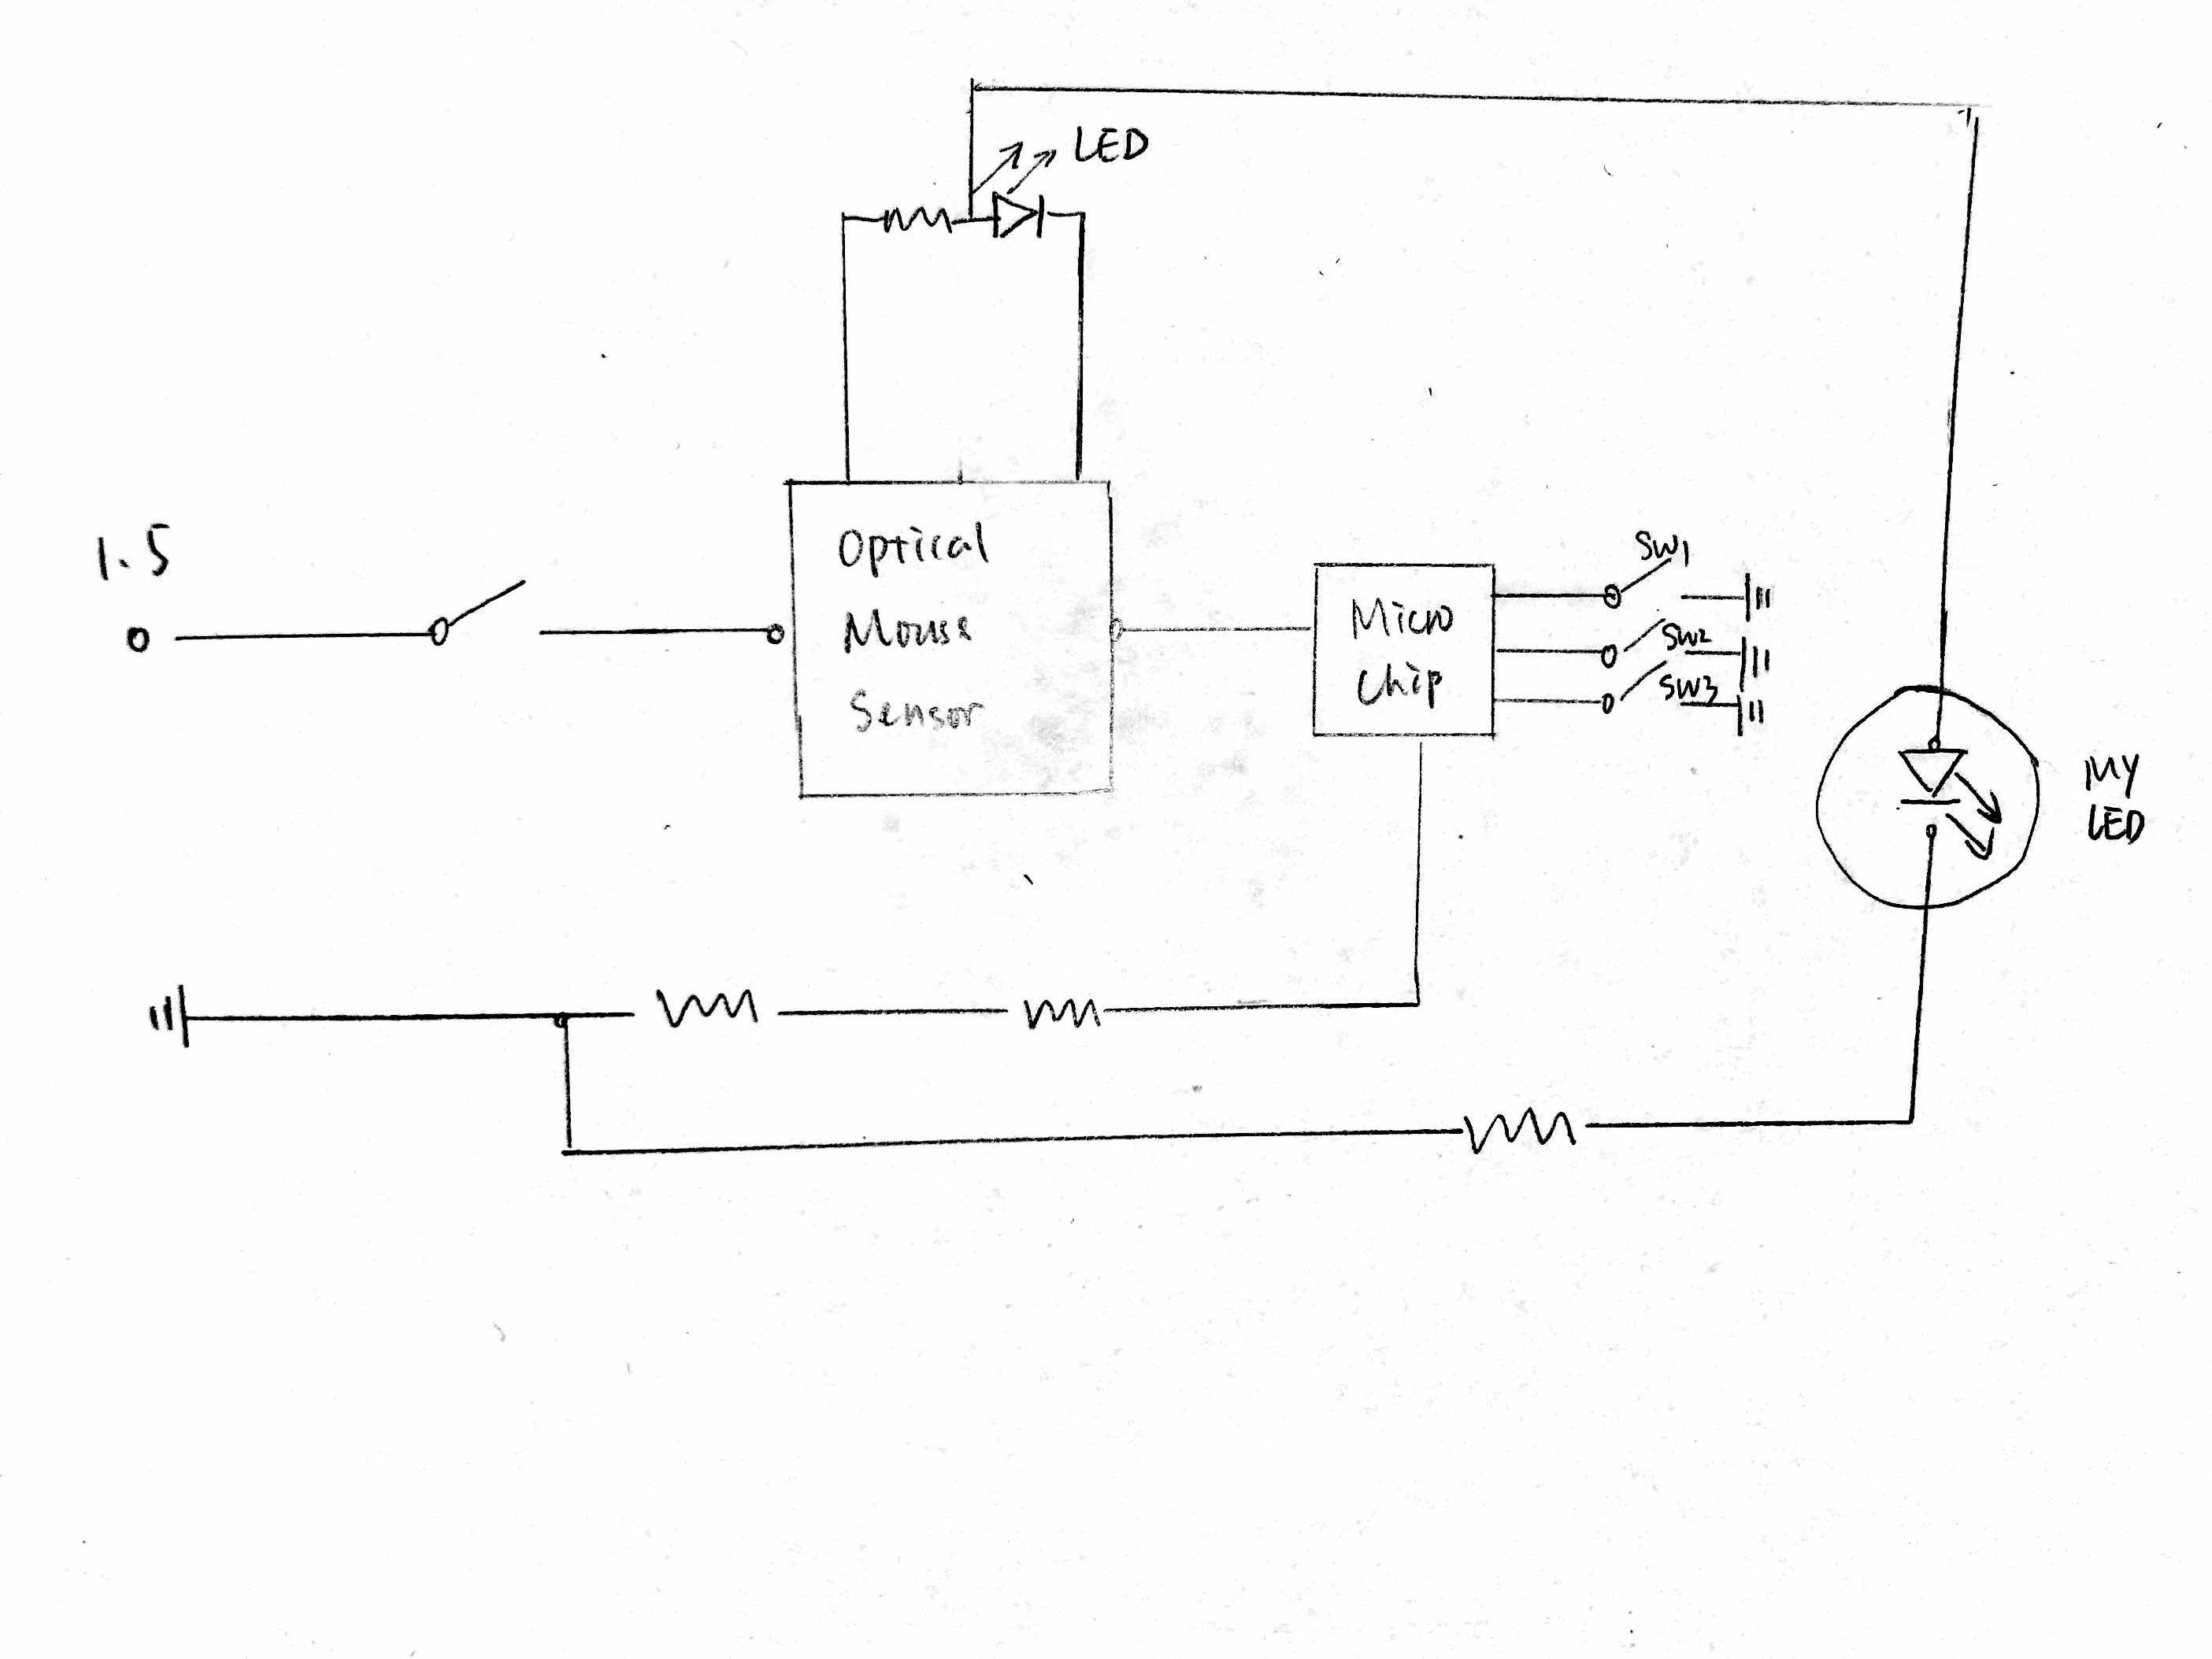 LED
1.5
Optical
Mouse
Sensor
Micro
Chip
SW1
SW2
SW3
MY
LED